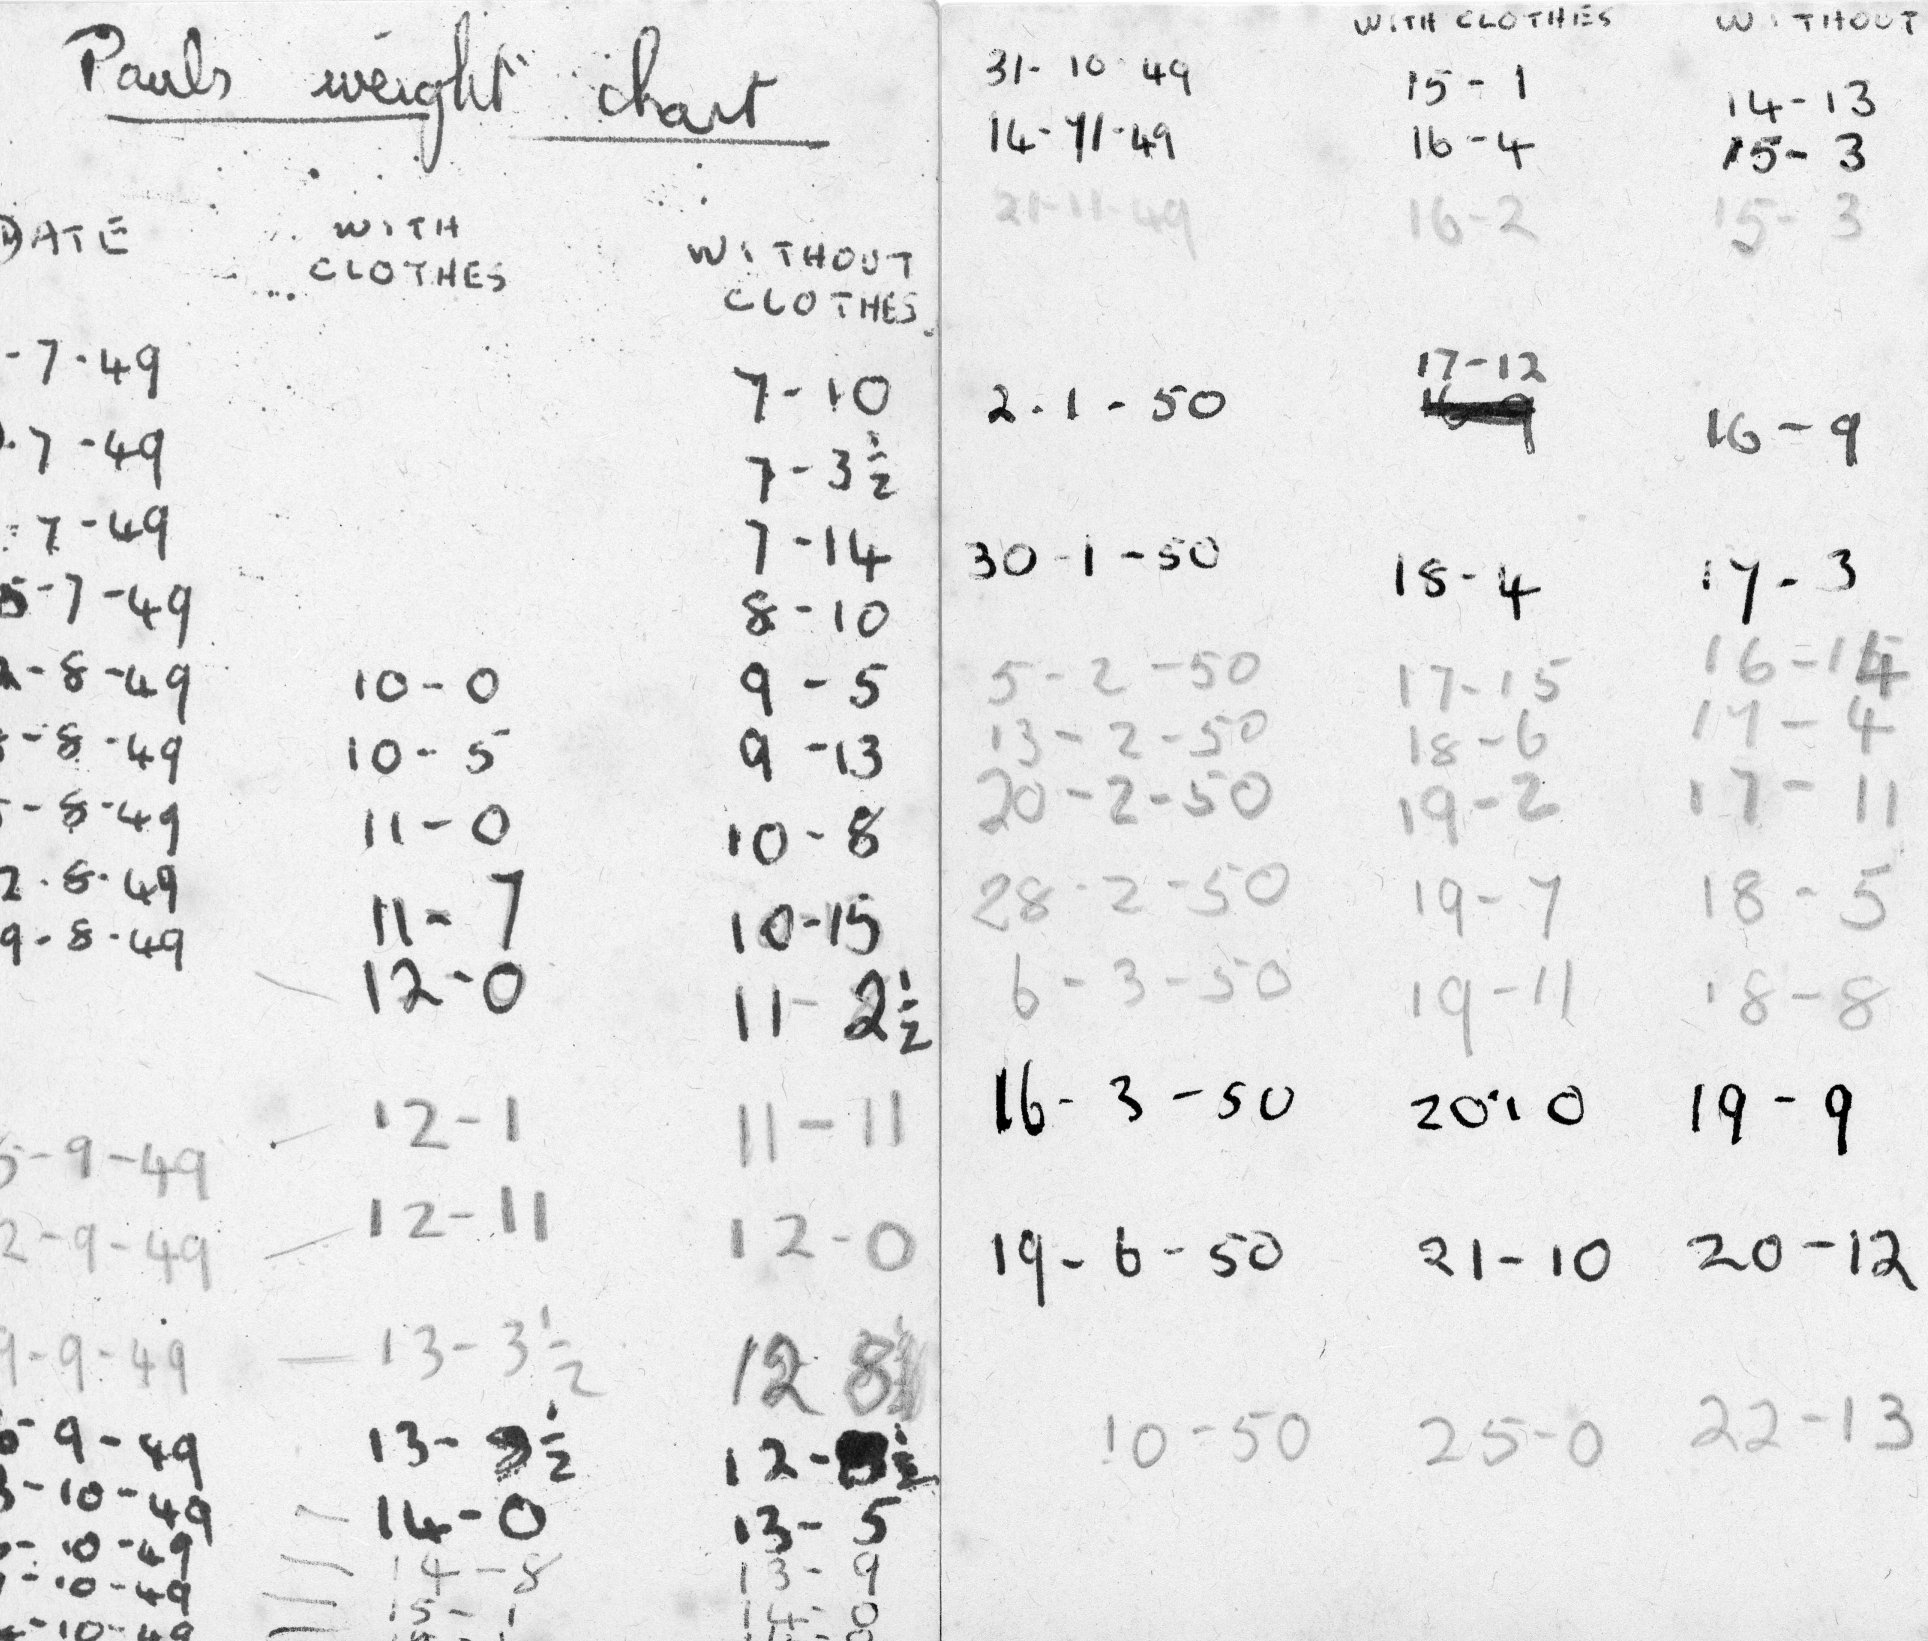 Pauls weight chart
DATE WITH CLOTHES WITHOUT CLOTHES
-7-49 7-10
-7-49 7-3½
7-49 7-14
5-7-49 8-10
-8-49 10-0 9-5
-8-49 10-5 9-13
-8-49 11-0 10-8
2-8-49 11-7 10-15
9-8-49 12-0 11-2½
5-9-49 12-1 11-11
2-9-49 12-11 12-0
9-9-49 13-3½ 12 8
9-49 13-½ 12-
3-10-49 14-0 13-5
-10-49 14-8 13-9
-10-49 15-1 14-0
-10-49
WITH CLOTHES WITHOUT
31-10-49 15-1 14-13
14-11-49 16-4 15-3
21-11-49 16-2 15-3
17-12
2-1-50 16-9 16-9
30-1-50 18-4 17-3
5-2-50 17-15 16-14
13-2-50 18-6 17-4
20-2-50 19-2 17-11
28-2-50 19-7 18-5
6-3-50 19-11 18-8
16-3-50 20·10 19-9
19-6-50 21-10 20-12
10-50 25-0 22-13